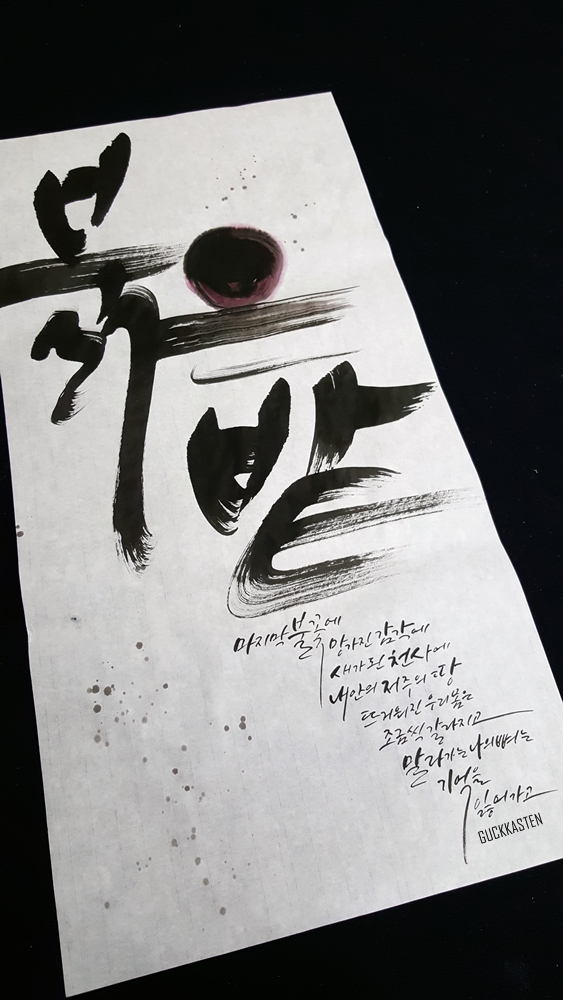 붉은
밭
마지막 불꽃에
망가진 감각에
새가 된 천사에
내 안의 저주의 땅
뜨거워진 우리 몸은
조금씩 갈라지고
말라가는 나의 뼈는
기억을
잃어가고
GUCKKASTEN